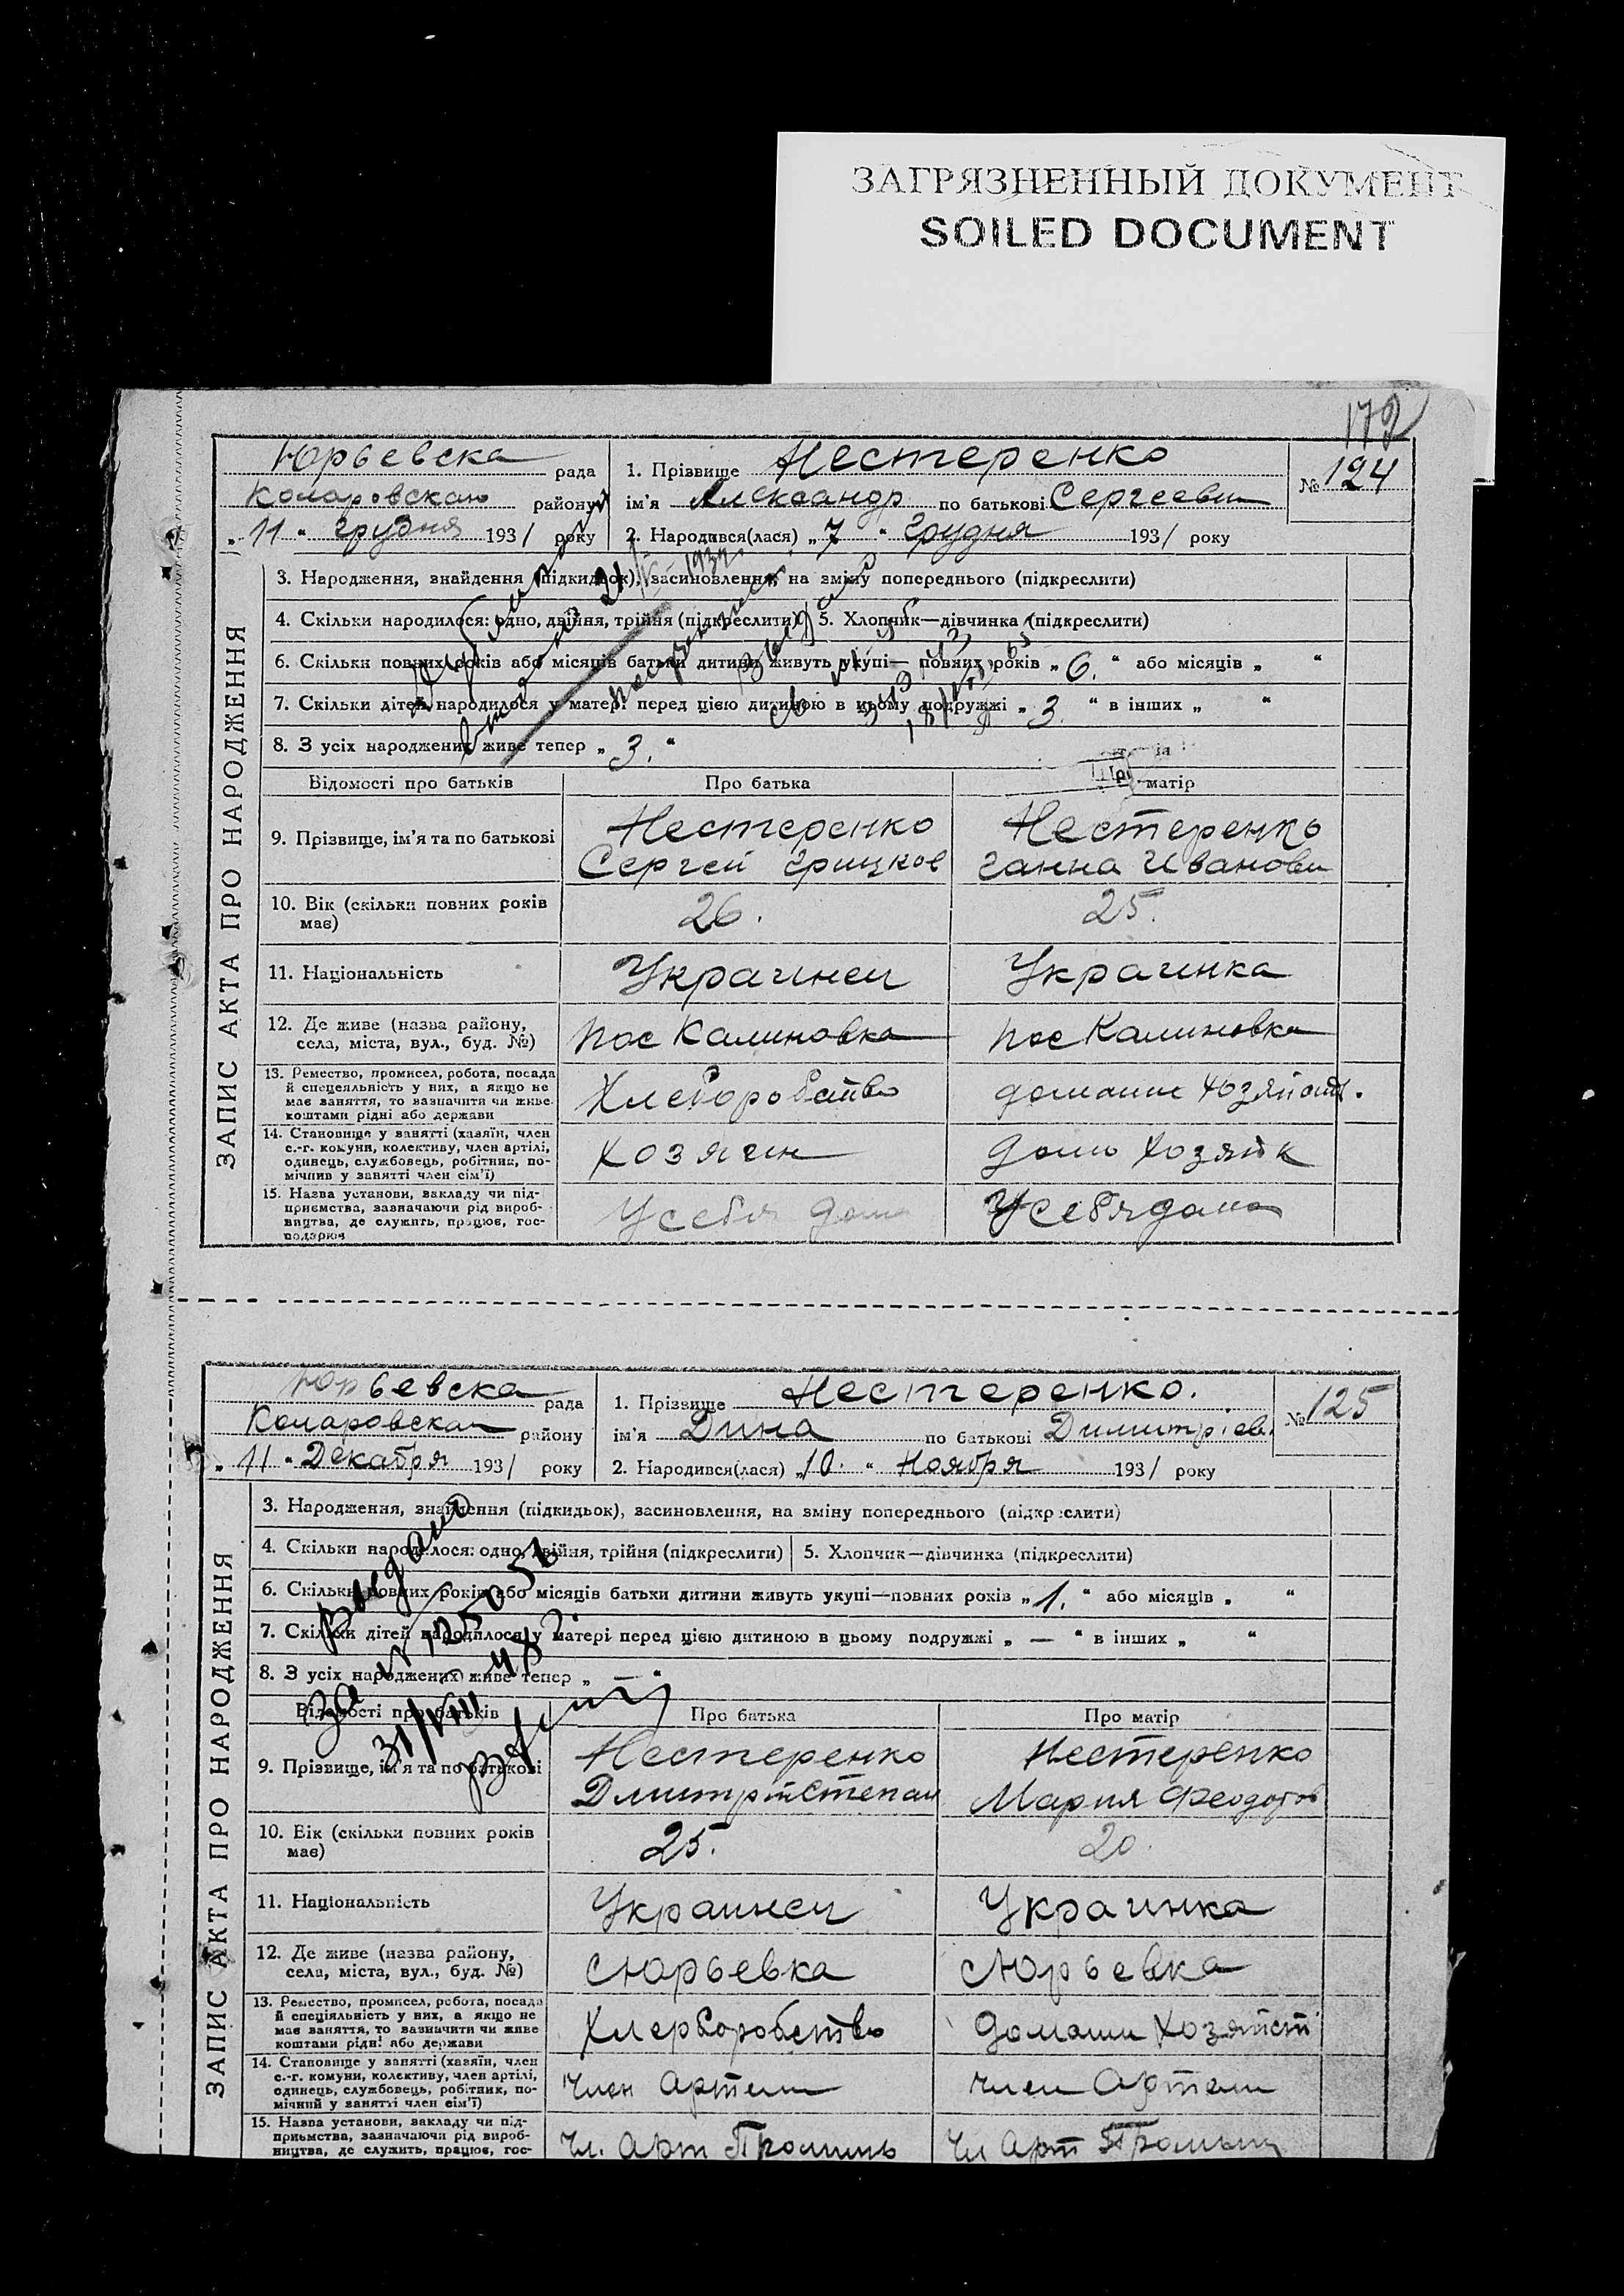 ЗАГРЯЗНЕННЫЙ ДОКУМЕНТ
SOILED DOCUMENT
172
Юрьевска рада
Коларовскаго району
„ 11 “ грудня 1931 року
1. Прізвище Нестеренко
ім’я Александр по батькові Сергеевич
2. Народився(лася) „ 7 “ Грудня 1931 року
№ 124
ЗАПИС АКТА ПРО НАРОДЖЕННЯ
3. Народження, знайдення (підкидьок), засиновлення, на зміну попереднього (підкреслити)
4. Скільки народилося: одно, двійня, трійня (підкреслити) 5. Хлопчик—дівчинка (підкреслити)
6. Скільки повних років або місяців батьки дитини живуть укупі— повних років „ 6. “ або місяців „ “
7. Скільки дітей народилося у матері перед цією дитиною в цьому подружжі „ 3. “ в інших „ “
8. З усіх народжених живе тепер „ 3. “
Дубликат
1932
Відомості про батьків Про батька матір
9. Прізвище, ім’я та по батькові
Нестеренко
Сергей Грицков
Нестеренко
Ганна Ивановн
10. Вік (скільки повних років
має)
26.
25.
11. Національність Украинец Украинка
12. Де живе (назва району,
села, міста, вул., буд. №)
пос Калиновка
пос Калиновка
13. Ремество, промисел, робота, посада
й спецеяльність у них, а якщо не
має заняття, то зазначити чи живе
коштами рідні або держави
Хлеборобство
домашн хозяйств.
14. Становище у занятті (хазяїн, член
с.-г. комуни, колективу, член артілі,
одинець, службовець, робітник, по-
мічник у занятті член сім’ї)
хозяин
дом хозяйк
15. Назва установи, закладу чи під-
приємства, зазначаючи рід вироб-
ництва, де служить, працює, гос-
подарює
У себя дома
У себя дома
Юрьевска рада
Коларовская району
„ 11 “ Декабря 1931 року
1. Прізвище Нестеренко.
ім’я Дина по батькові Димитріев.
2. Народився(лася) „ 10. “ Ноября 1931 року
№ 125
ЗАПИС АКТА ПРО НАРОДЖЕННЯ
3. Народження, знайдення (підкидьок), засиновлення, на зміну попереднього (підкреслити)
4. Скільки народилося: одно, двійня, трійня (підкреслити) 5. Хлопчик—дівчинка (підкреслити)
6. Скільки повних років або місяців батьки дитини живуть укупі—повних років „ 1. “ або місяців „ “
7. Скільки дітей народилося у матері перед цією дитиною в цьому подружжі „ — “ в інших „ “
8. З усіх народжених живе тепер „ —
Выдано
за №
31/VIII 48 г.
Відомості про батьків Про батька Про матір
9. Прізвище, ім’я та по батькові
Нестеренко
Дмитрий Степан
Нестеренко
Мария Феодотов
10. Вік (скільки повних років
має)
25.
20.
11. Національність Украинец Украинка
12. Де живе (назва району,
села, міста, вул., буд. №)
с Юрьевка
с Юрьевка
13. Ремество, промисел, робота, посада
й спеціяльність у них, а якщо не
має заняття, то зазначити чи живе
коштами рідні або держави
Хлерборобство
Домашн хозяйст
14. Становище у занятті (хазяїн, член
с.-г. комуни, колективу, член артілі,
одинець, службовець, робітник, по-
мічний у занятті член сім’ї)
Член Артели
член Артели
15. Назва установи, закладу чи під-
приємства, зазначаючи рід вироб-
ництва, де служить, працює, гос-
Чл. Арт Проминь
Чл Арт Проминь